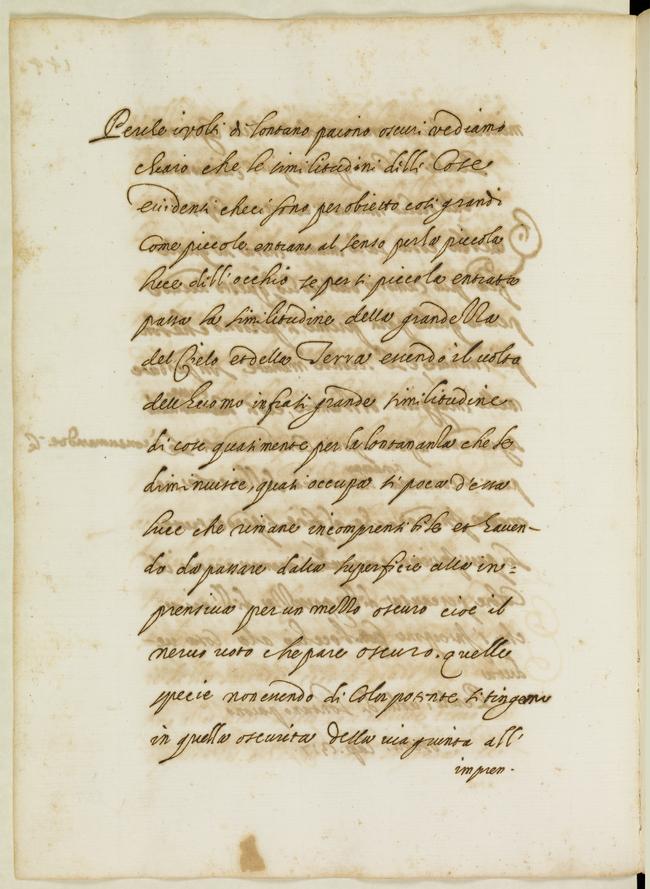 Perche i volti di lontano paiono oscuri vediamo
chiaro che le similitudini delli Cose
evidenti checi sono per obietto così grandi
Come piccole entrano al senso perla piccola
luce dell'occhio se per si piccola entrata
passa la similitudine della grandezza
del Cielo et della Terra essendo il volto
dell huomo infrati grande similitudine
di cose quasi niente per la lontananza che le
diminuisce, quasi occupa si poca d'essa
luce che rimane incomprensibile et haven-
do da passare dalla superficie alla in=
prensiva per un mezzo oscuro cioè il
nervo voto che pare oscuro. quelle
specie non essendo di Color potente si tingono
in quella oscurità della via giunta all'
impren-